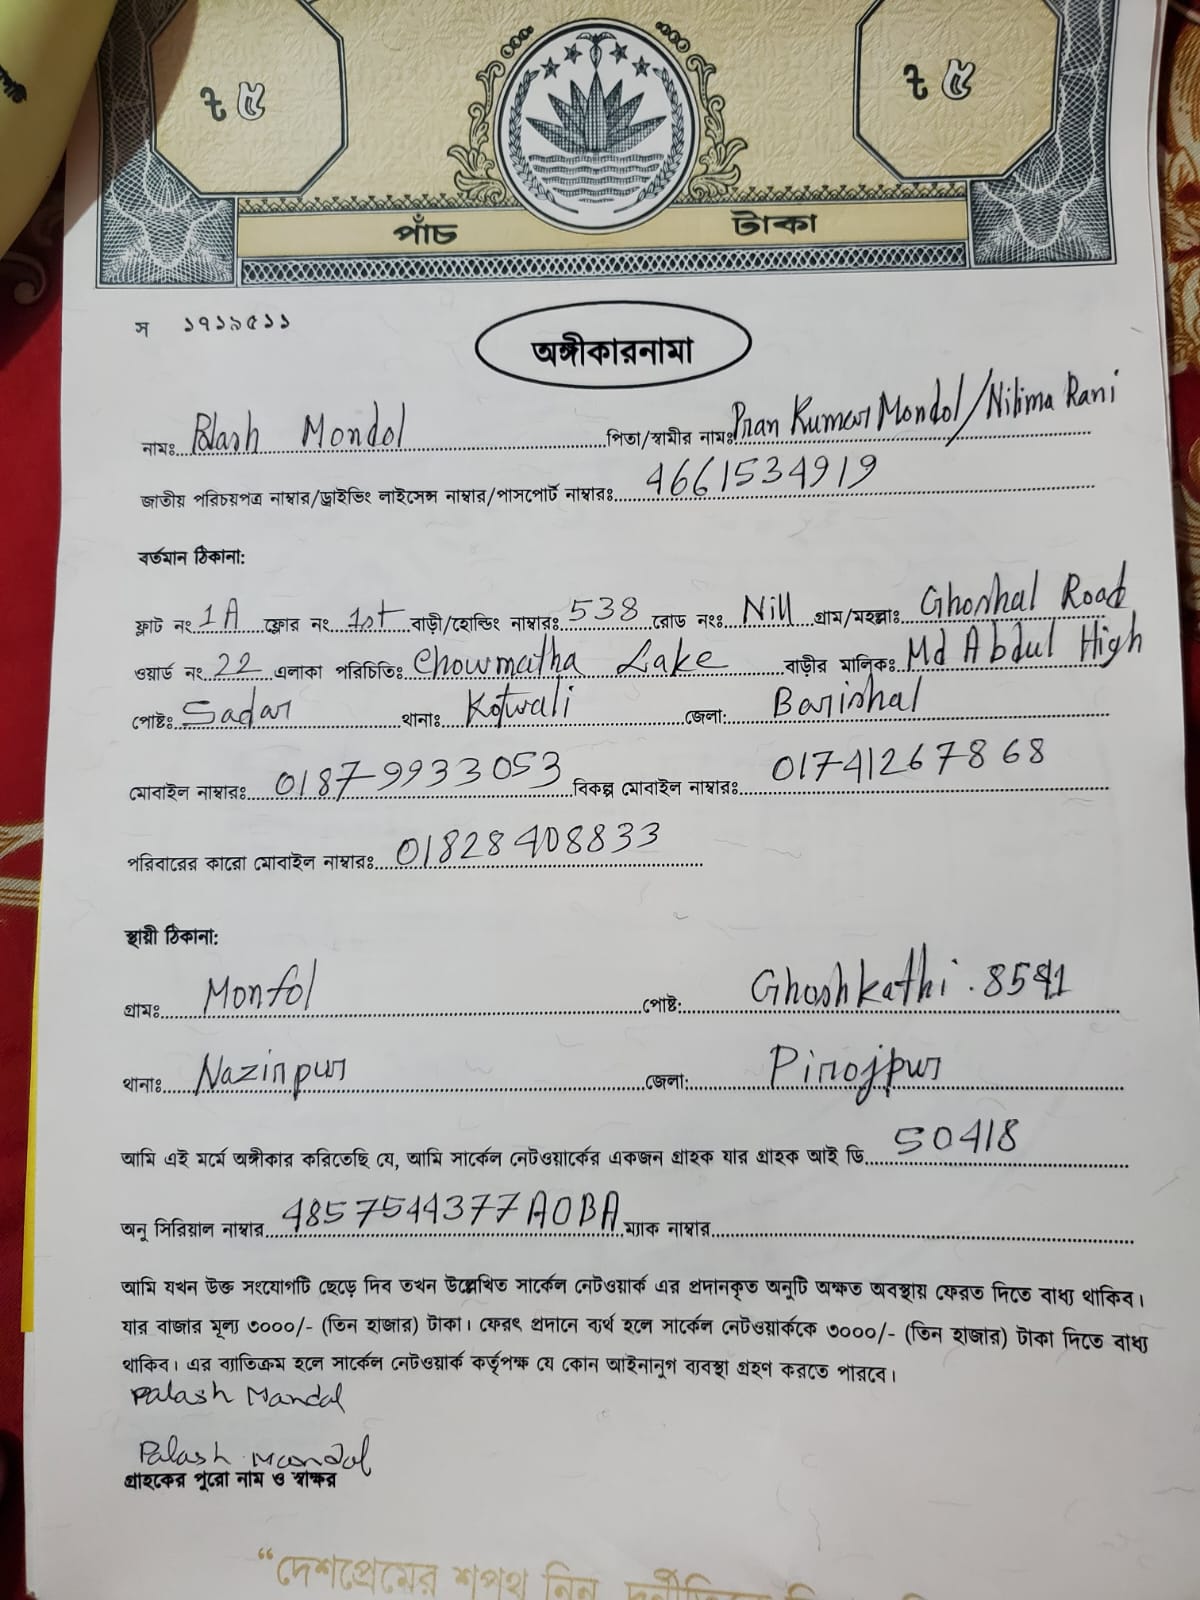 ৳ ৫ ৳ ৫
পাঁচ টাকা
স ১৭১৯৫১১
অঙ্গীকারনামা
নামঃ Palash Mondol পিতা/স্বামীর নামঃ Pran Kumar Mondol/Nilima Rani
জাতীয় পরিচয়পত্র নাম্বার/ড্রাইভিং লাইসেন্স নাম্বার/পাসপোর্ট নাম্বারঃ 4661534919
বর্তমান ঠিকানা:
ফ্লাট নং 1A ফ্লোর নং 1st বাড়ী/হোল্ডিং নাম্বারঃ 538 রোড নংঃ Nill গ্রাম/মহল্লাঃ Ghoshal Road
ওয়ার্ড নং 22 এলাকা পরিচিতিঃ Chowmatha Lake বাড়ীর মালিকঃ Md Abdul High
পোষ্টঃ Sadar থানাঃ Kotwali জেলা: Barishal
মোবাইল নাম্বারঃ 01879933053 বিকল্প মোবাইল নাম্বারঃ 01741267868
পরিবারের কারো মোবাইল নাম্বারঃ 01828408833
স্থায়ী ঠিকানা:
গ্রামঃ পোষ্ট: Ghoshkathi . 8541
থানাঃ Nazirpur জেলা: Pirojpur
আমি এই মর্মে অঙ্গীকার করিতেছি যে, আমি সার্কেল নেটওয়ার্কের একজন গ্রাহক যার গ্রাহক আই ডি 50418
অনু সিরিয়াল নাম্বার 4857544377A0BA ম্যাক নাম্বার
আমি যখন উক্ত সংযোগটি ছেড়ে দিব তখন উল্লেখিত সার্কেল নেটওয়ার্ক এর প্রদানকৃত অনুটি অক্ষত অবস্থায় ফেরত দিতে বাধ্য থাকিব।
যার বাজার মূল্য ৩০০০/- (তিন হাজার) টাকা। ফেরৎ প্রদানে ব্যর্থ হলে সার্কেল নেটওয়ার্ককে ৩০০০/- (তিন হাজার) টাকা দিতে বাধ্য
থাকিব। এর ব্যাতিক্রম হলে সার্কেল নেটওয়ার্ক কর্তৃপক্ষ যে কোন আইনানুগ ব্যবস্থা গ্রহণ করতে পারবে।
Palash Mandal
Palash Mondol
গ্রাহকের পুরো নাম ও স্বাক্ষর
“দেশপ্রেমের শপথ নিন